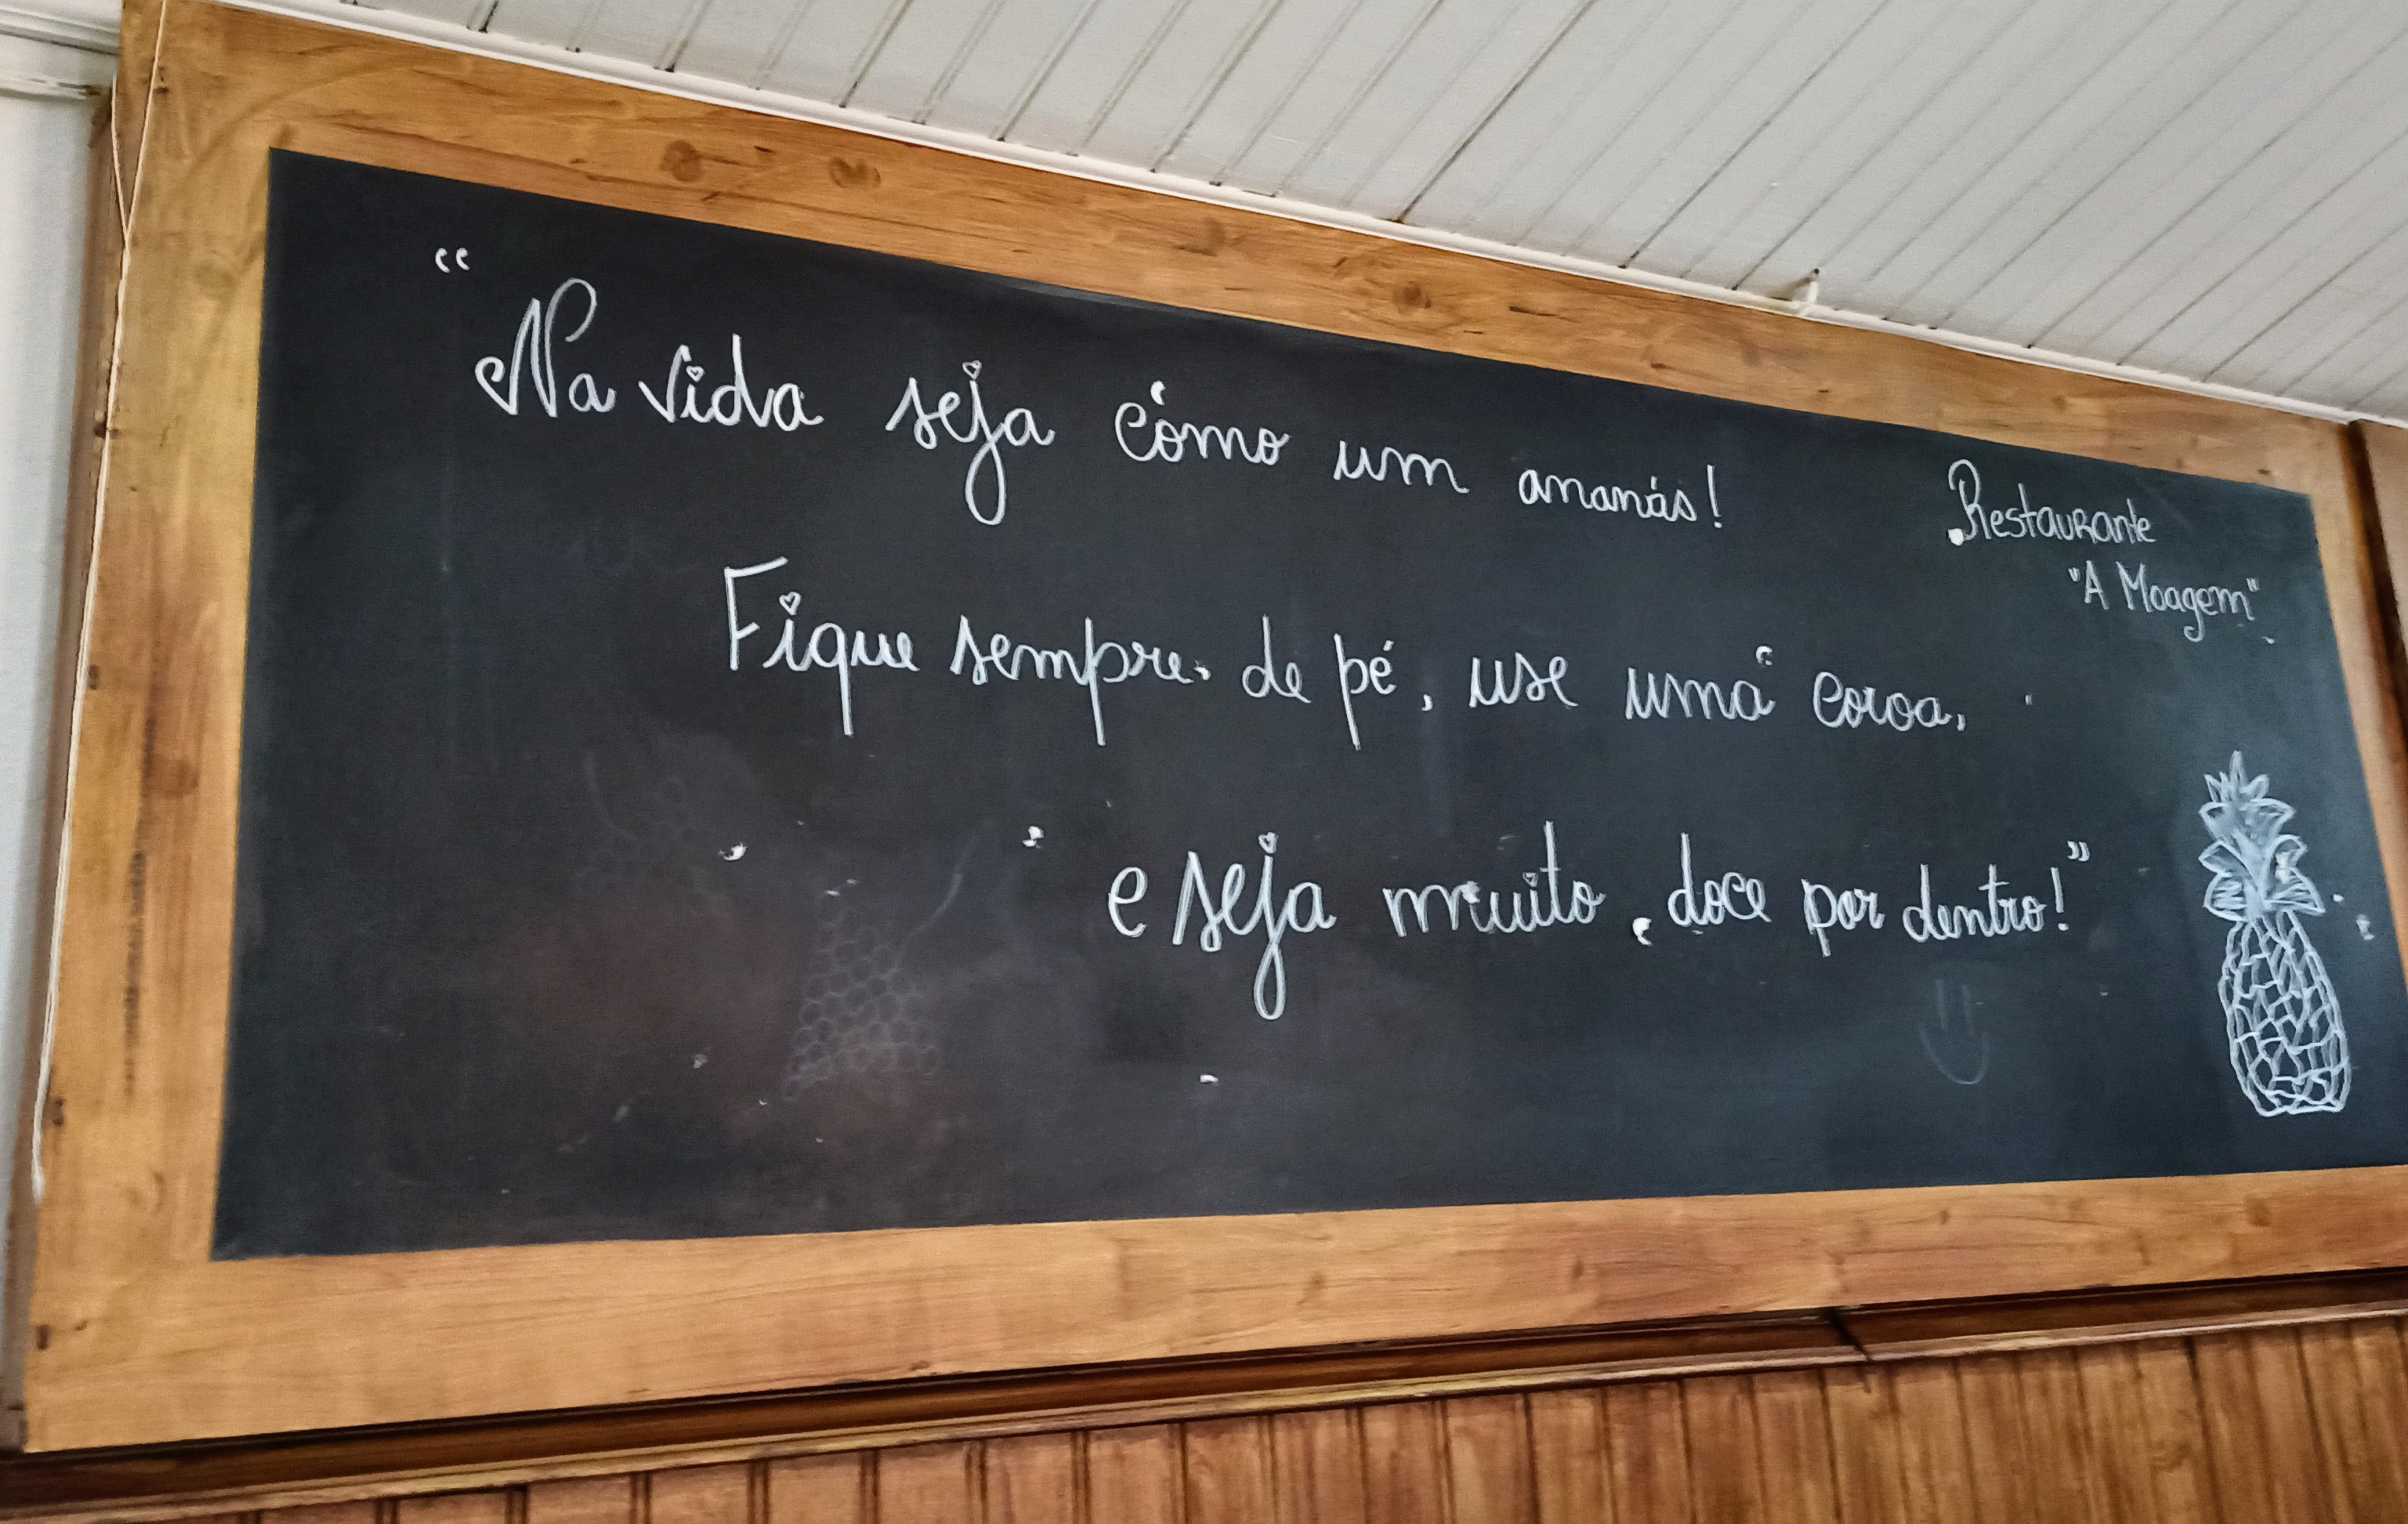 “Na vida seja como um ananás!
Restaurante
"A Moagem"
Fique sempre de pé, use uma coroa,
e seja muito doce por dentro!”